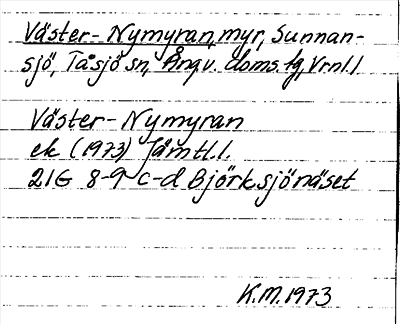 Väster-Nymyran, myr, Sunnan-
sjö, Tåsjö sn, Ångv. doms.lg, Vrnl.l
Väster-Nymyran
ek (1973) Jämtl.l.
21G 8-9 c-d Björksjönäset
K.M. 1973